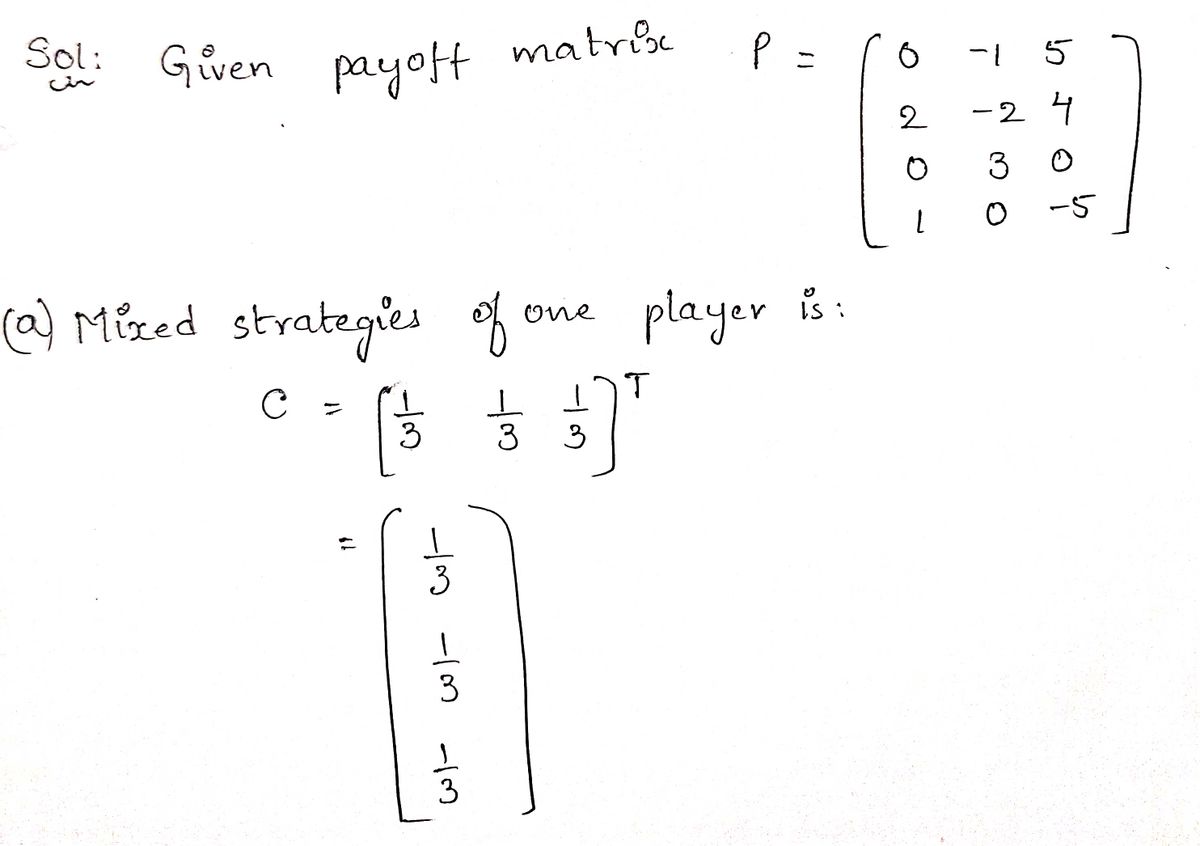 Sol: Given payoff matrix P = [0 -1 5
2 -2 4
0 3 0
1 0 -5]
(a) Mixed strategies of one player is:
C = [1/3 1/3 1/3]^T
= [1/3
1/3
1/3]